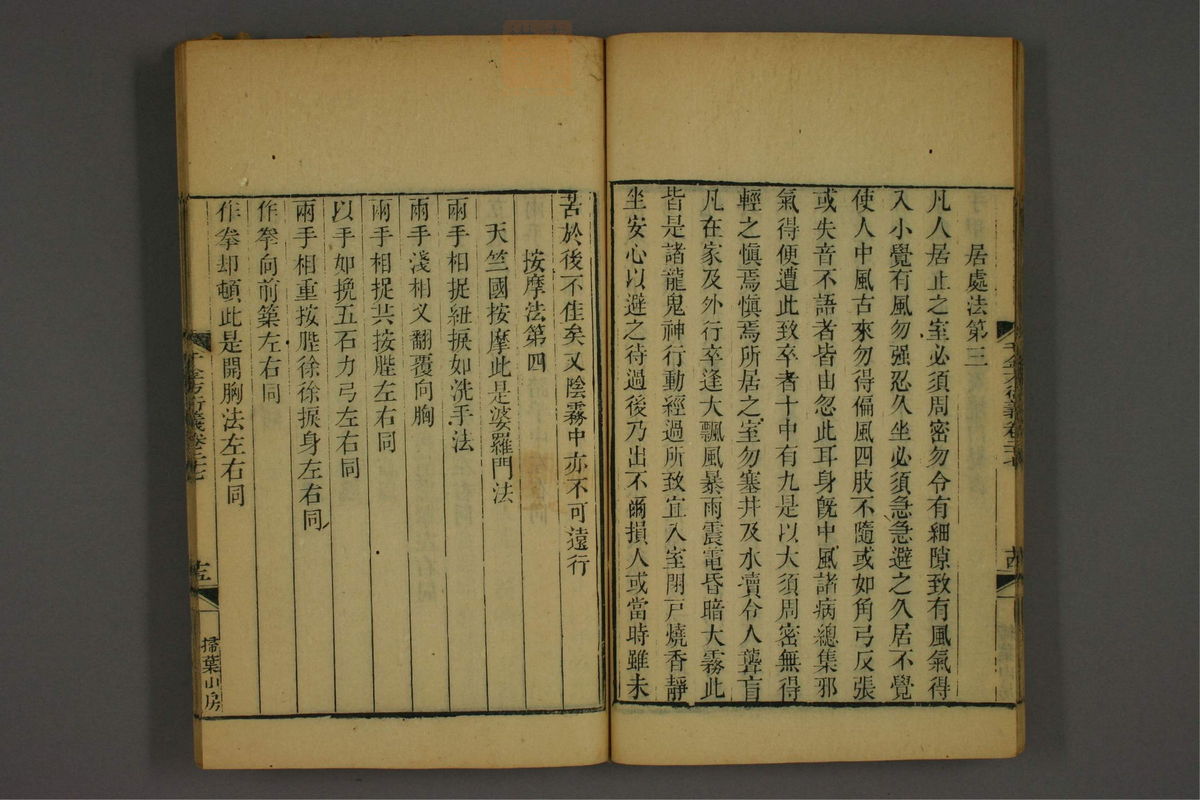 居處法第三
凡人居止之室必須周密勿令有細隙致有風氣得
入小覺有風勿强忍久坐必須急急避之久居不覺
使人中風古來勿得偏風四肢不隨或如角弓反張
或失音不語者皆由忽此耳身旣中風諸病總集邪
氣得便遭此致卒者十中有九是以大須周密無得
輕之愼焉愼焉所居之室勿塞井及水瀆令人聾盲
凡在家及外行卒逢大飄風暴雨震電昏暗大霧此
皆是諸龍鬼神行動經過所致宜入室閉戸燒香靜
坐安心以避之待過後乃出不爾損人或當時雖未
苦於後不佳矣又陰霧中亦不可遠行
按摩法第四
天竺國按摩此是婆羅門法
兩手相捉紐捩如洗手法
兩手淺相叉翻覆向胸
兩手相捉共按䏶左右同
以手如挽五石力弓左右同
兩手相重按䏶徐徐捩身左右同
作拳向前築左右同
作拳却頓此是開胸法左右同
千金方衍義卷二十七
掃葉山房